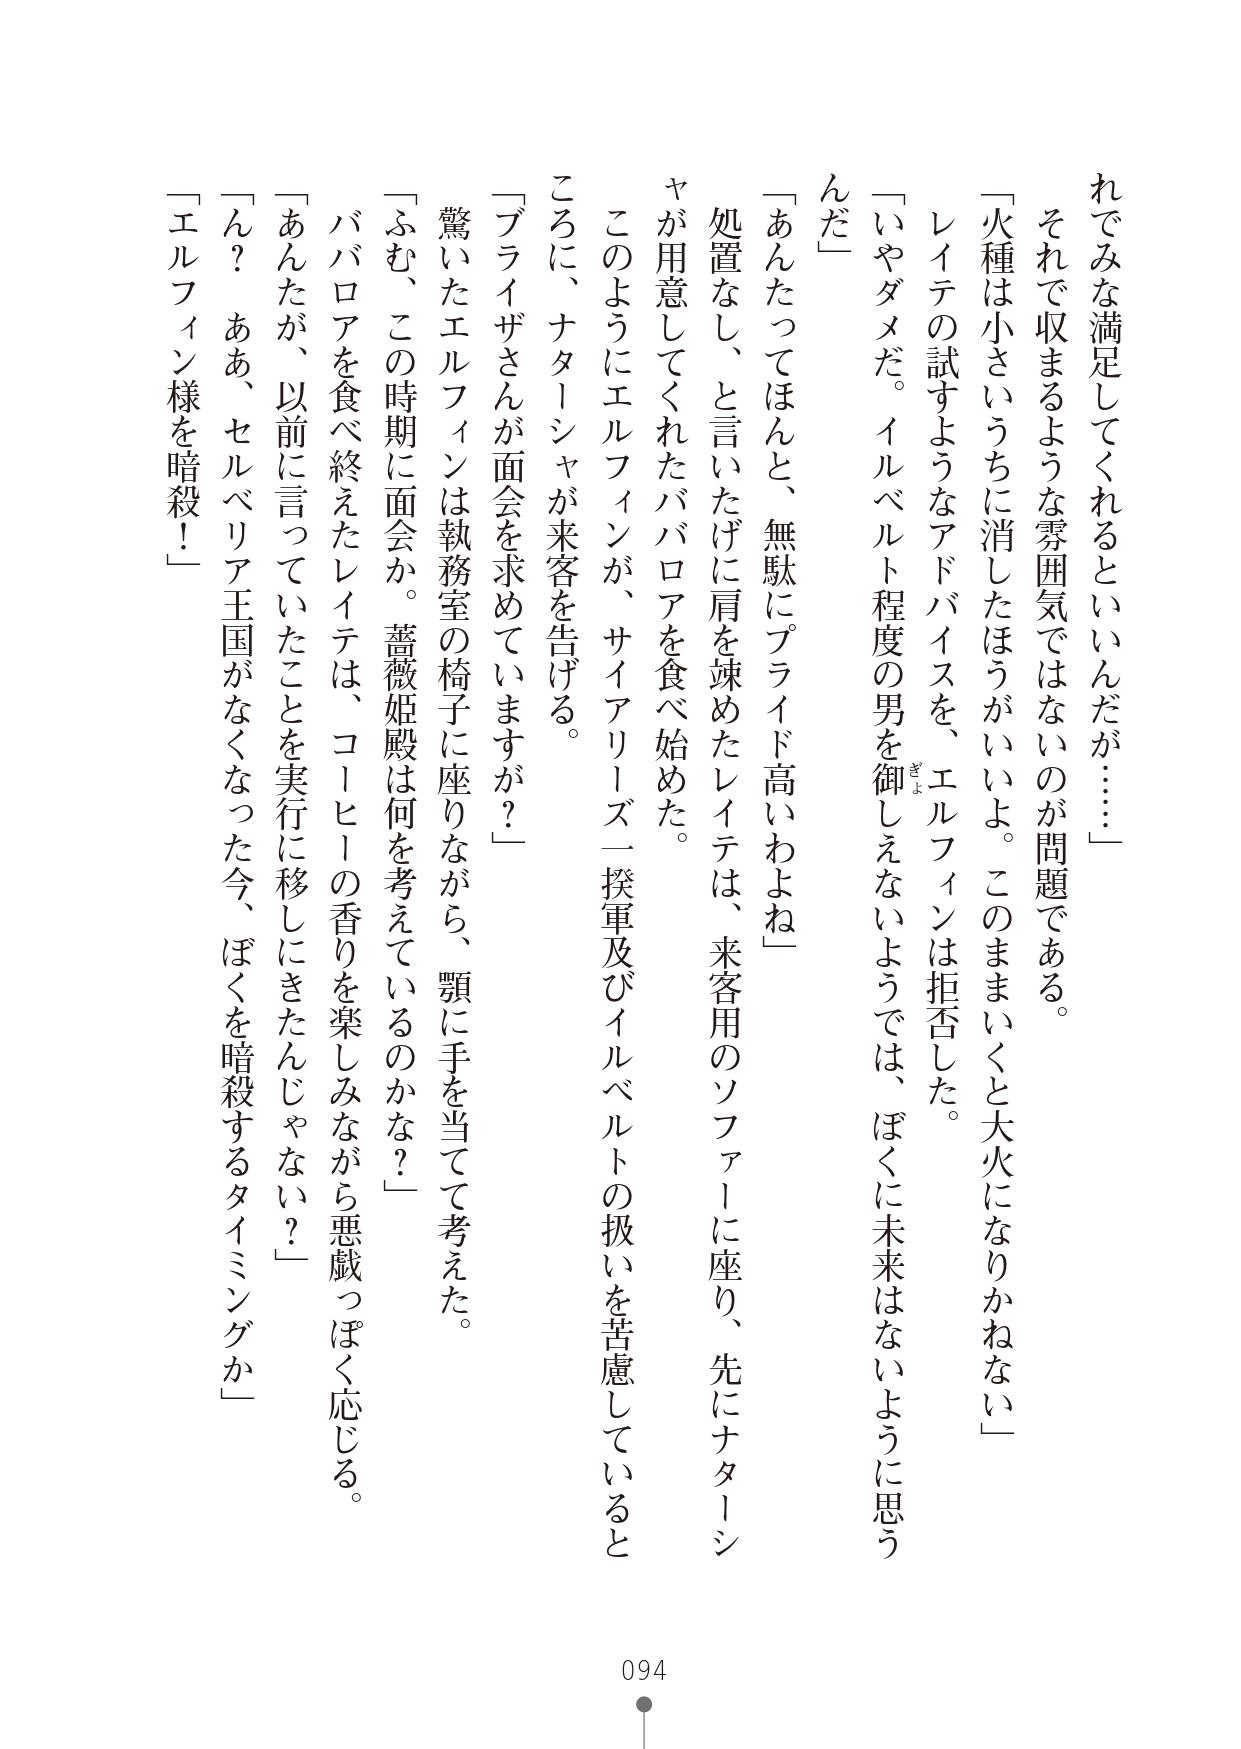 れでみな満足してくれるといいんだが……」
　それで収まるような雰囲気ではないのが問題である。
「火種は小さいうちに消したほうがいいよ。このままいくと大火になりかねない」
　レイテの試すようなアドバイスを、エルフィンは拒否した。
「いやダメだ。イルベルト程度の男を御しえないようでは、ぼくに未来はないように思う
ぎょ
んだ」
「あんたってほんと、無駄にプライド高いわよね」
　処置なし、と言いたげに肩を竦めたレイテは、来客用のソファーに座り、先にナターシ
ャが用意してくれたババロアを食べ始めた。
　このようにエルフィンが、サイアリーズ一揆軍及びイルベルトの扱いを苦慮していると
ころに、ナターシャが来客を告げる。
「ブライザさんが面会を求めていますが？」
　驚いたエルフィンは執務室の椅子に座りながら、顎に手を当てて考えた。
「ふむ、この時期に面会か。薔薇姫殿は何を考えているのかな？」
　ババロアを食べ終えたレイテは、コーヒーの香りを楽しみながら悪戯っぽく応じる。
「あんたが、以前に言っていたことを実行に移しにきたんじゃない？」
「ん？　ああ、セルベリア王国がなくなった今、ぼくを暗殺するタイミングか」
「エルフィン様を暗殺！」
094